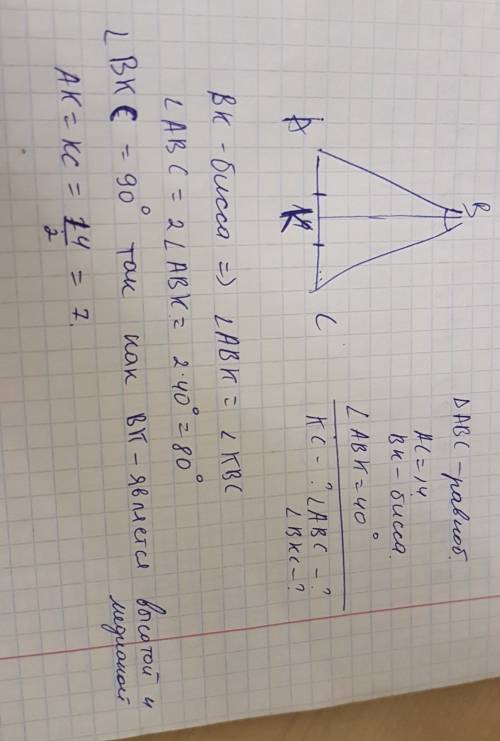 A
B
K
C
ΔABC - равноб.
AC = 14
BK - бисса.
∠ABK = 40°
KC - ? ∠ABC - ?
∠BKC - ?
BK - бисса => ∠ABK = ∠KBC
∠ABC = 2∠ABK = 2·40° = 80°
∠BKC = 90° так как BK - является высатой и медианой
AK = KC = 14/2 = 7.